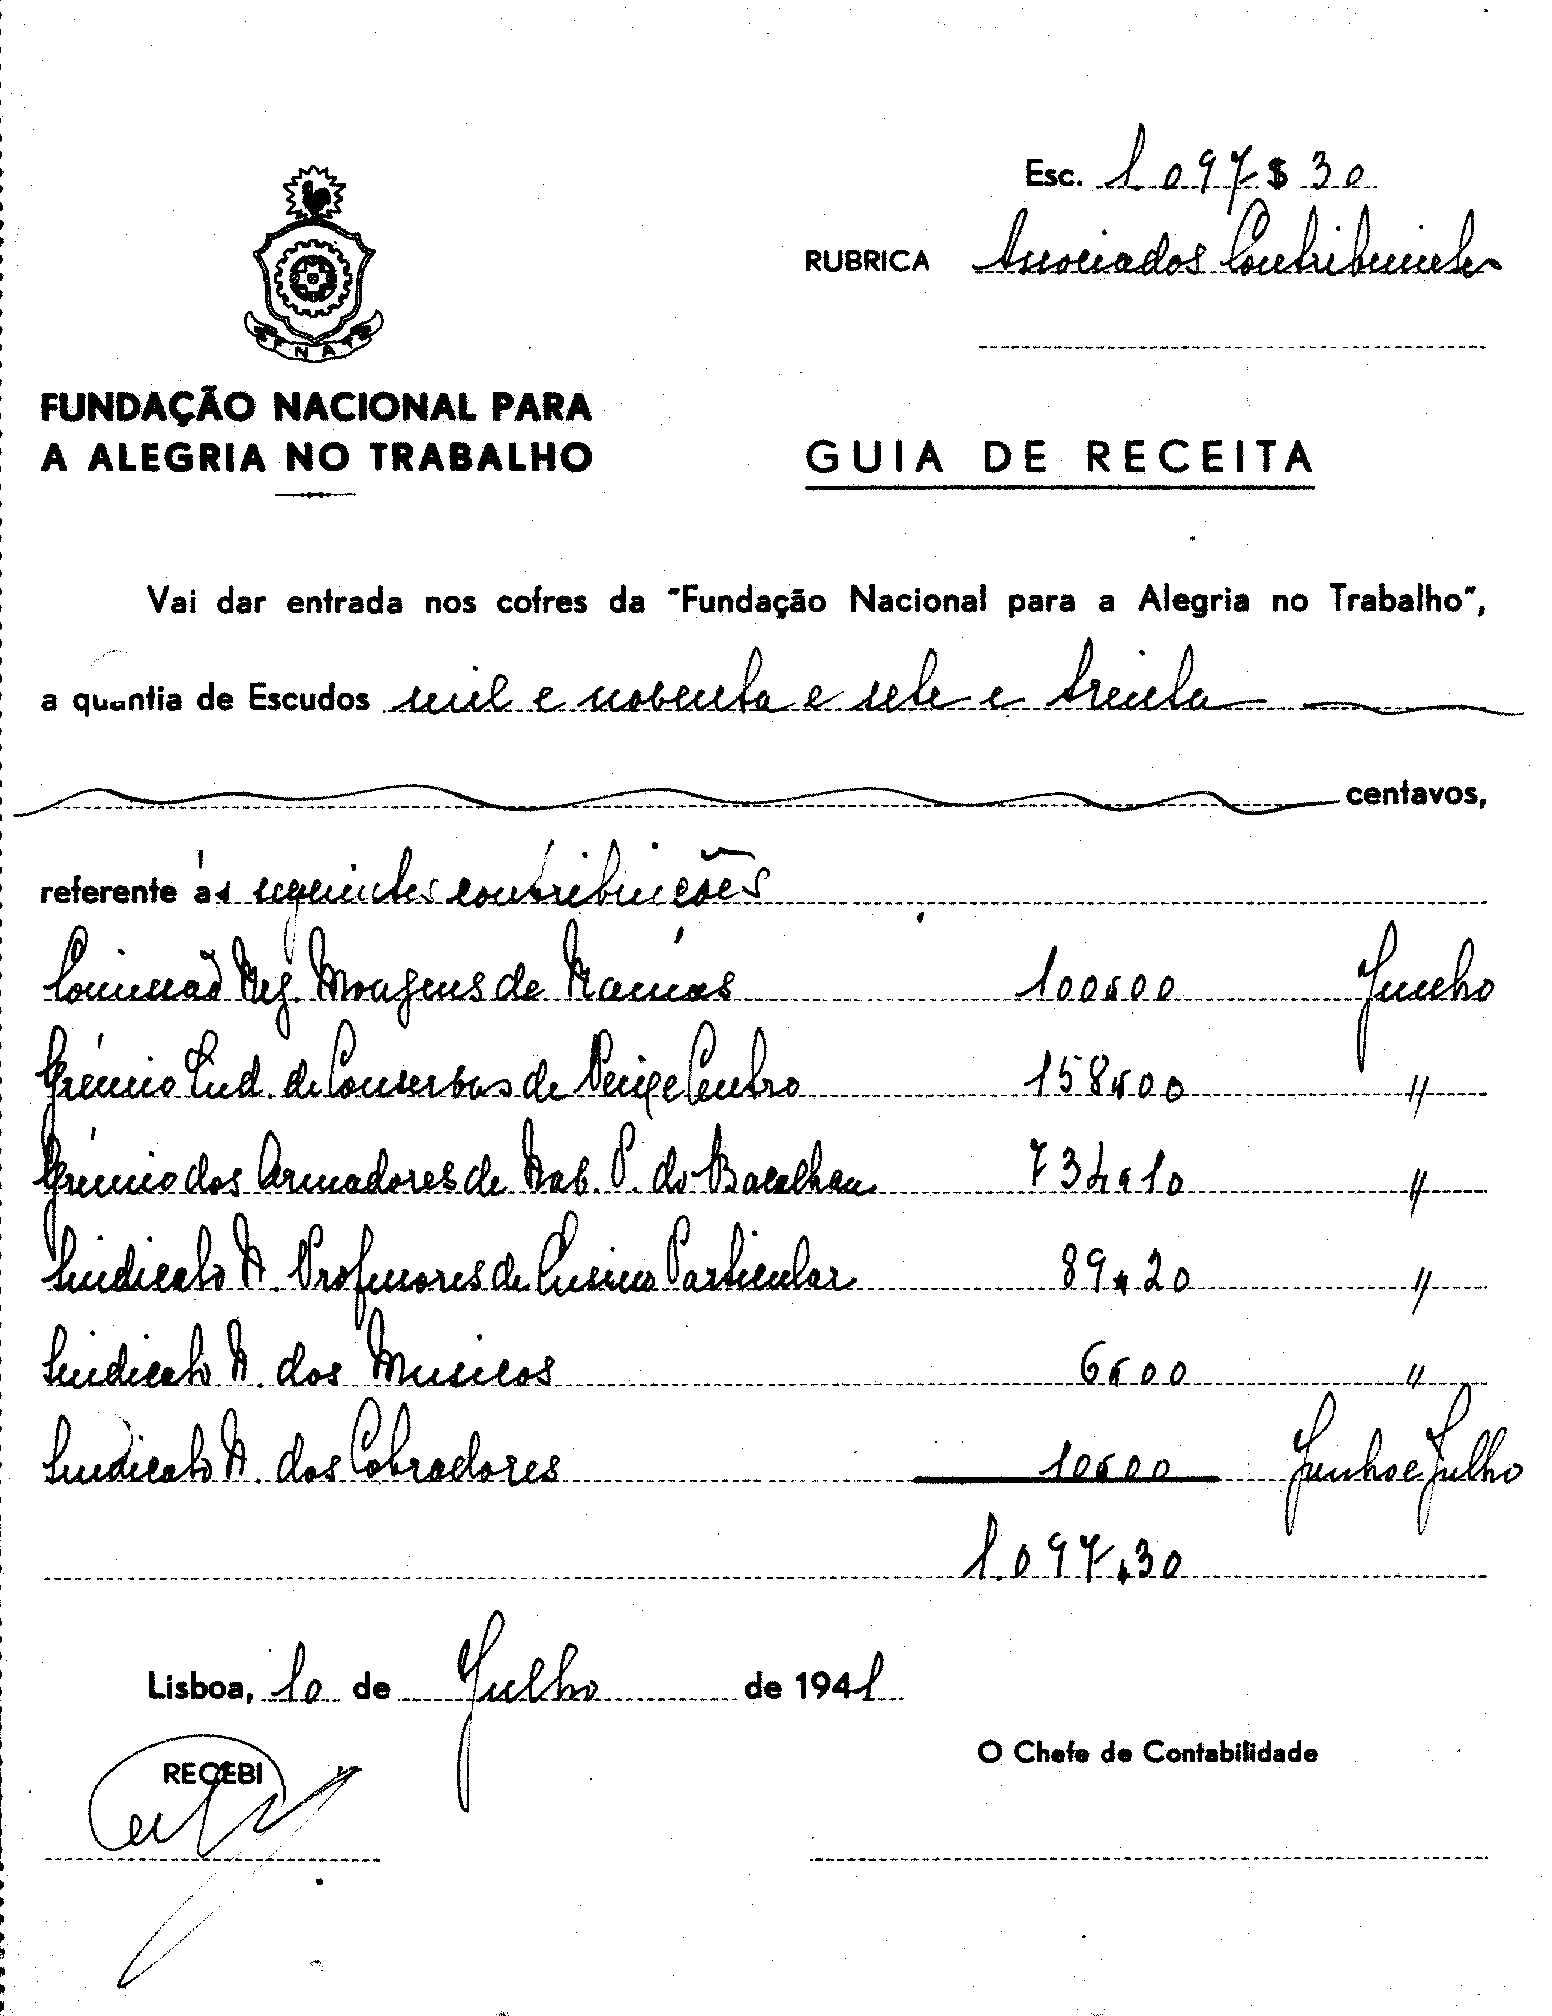 Esc. 1.097$30
RUBRICA Associados Contribuintes
FNAT
FUNDAÇÃO NACIONAL PARA
A ALEGRIA NO TRABALHO
GUIA DE RECEITA
Vai dar entrada nos cofres da "Fundação Nacional para a Alegria no Trabalho",
a quantia de Escudos mil e noventa e sete e trinta
centavos,
referente ás seguintes contribuições
Comissão Reg. Moagens de Ramas 100$00 Junho
Grémio Ind. de Conservas de Peixe Centro 158$00 "
Grémio dos Armadores de Nav. P. do Bacalhau 734$10 "
Sindicato N. Professores de Ensino Particular 89$20 "
Sindicato N. dos Musicos 6$00 "
Sindicato N. dos Cobradores 10$00 Junho e Julho
1.097$30
Lisboa, 10 de Julho de 1941
O Chefe de Contabilidade
RECEBI